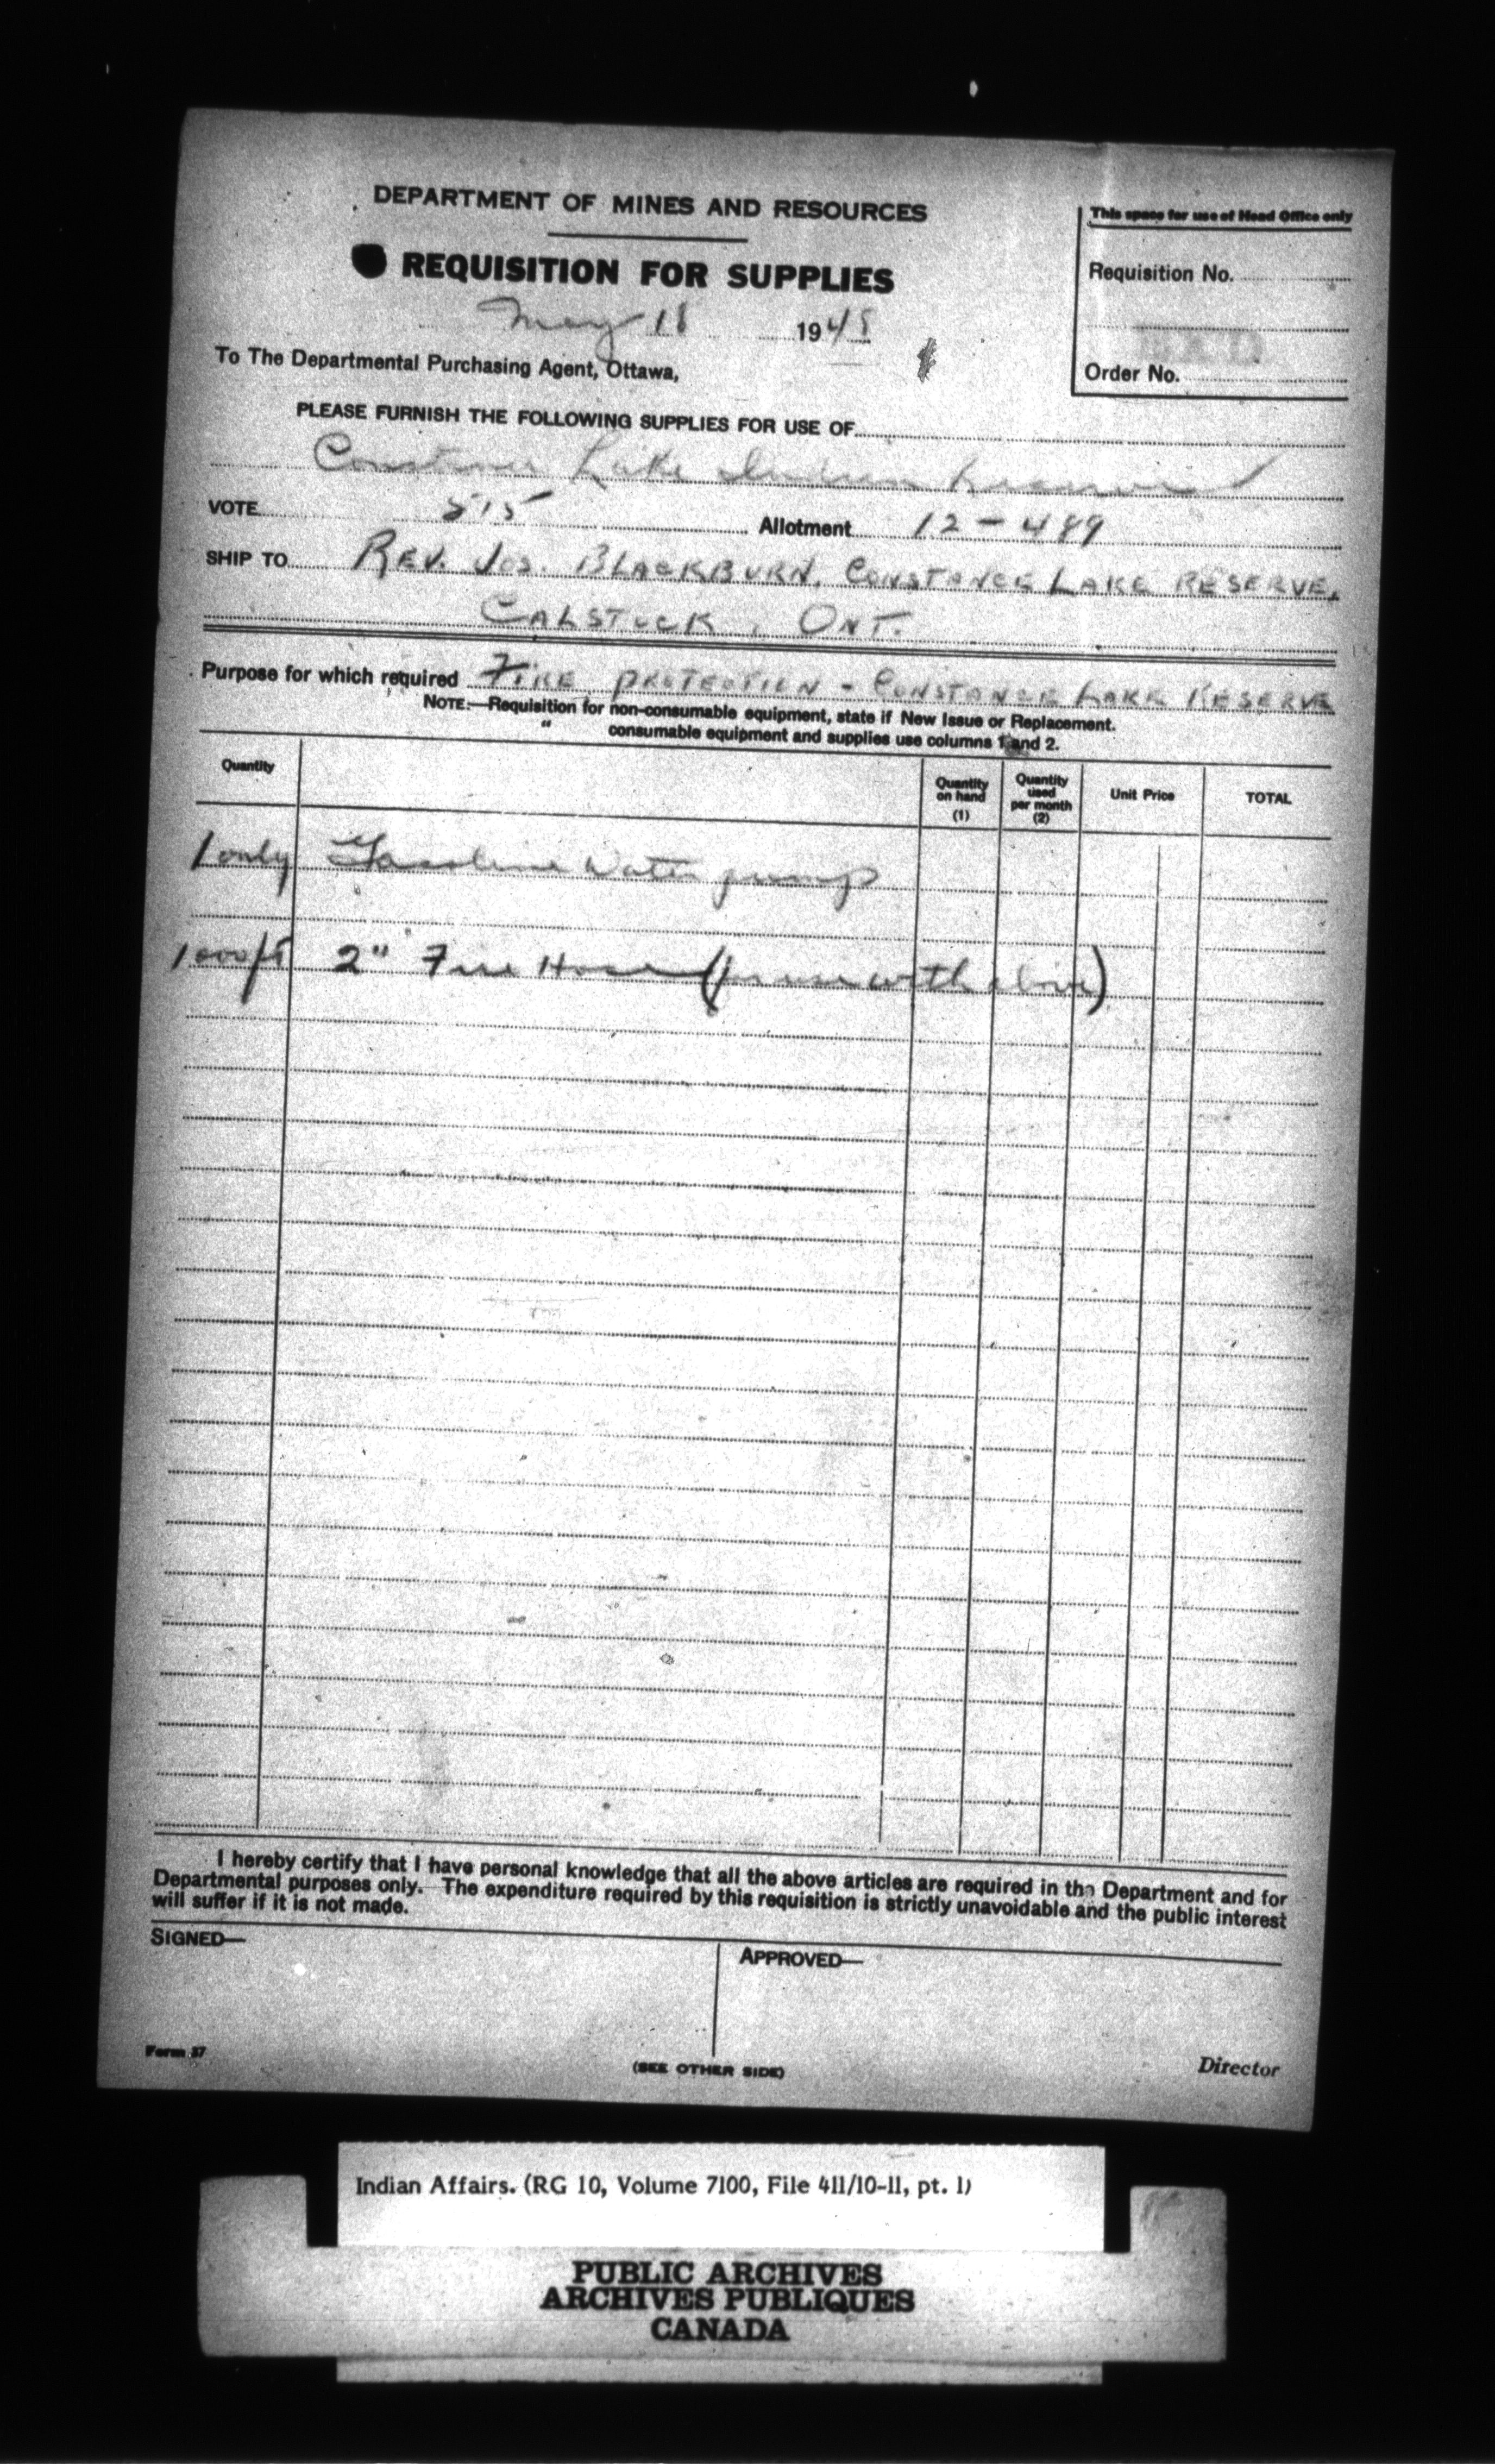 DEPARTMENT OF MINES AND RESOURCES
This space for use of Head Office only
REQUISITION FOR SUPPLIES
Requisition No.
May 18 1948
To The Departmental Purchasing Agent, Ottawa,
Order No.
PLEASE FURNISH THE FOLLOWING SUPPLIES FOR USE OF
Constance Lake Indian Reserve
VOTE 515 Allotment 12-489
SHIP TO REV. JOS. BLACKBURN, CONSTANCE LAKE RESERVE,
CALSTOCK, ONT.
Purpose for which required FIRE PROTECTION - CONSTANCE LAKE RESERVE
NOTE.—Requisition for non-consumable equipment, state if New Issue or Replacement.
" consumable equipment and supplies use columns 1 and 2.
Quantity Quantity on hand (1) Quantity used per month (2) Unit Price TOTAL
1 only Gasoline Water pump
1000 ft 2" Fire Hose (for use with above)
I hereby certify that I have personal knowledge that all the above articles are required in the Department and for
Departmental purposes only. The expenditure required by this requisition is strictly unavoidable and the public interest
will suffer if it is not made.
SIGNED—
APPROVED—
Form 37
(SEE OTHER SIDE)
Director
Indian Affairs. (RG 10, Volume 7100, File 411/10-11, pt. 1)
PUBLIC ARCHIVES
ARCHIVES PUBLIQUES
CANADA